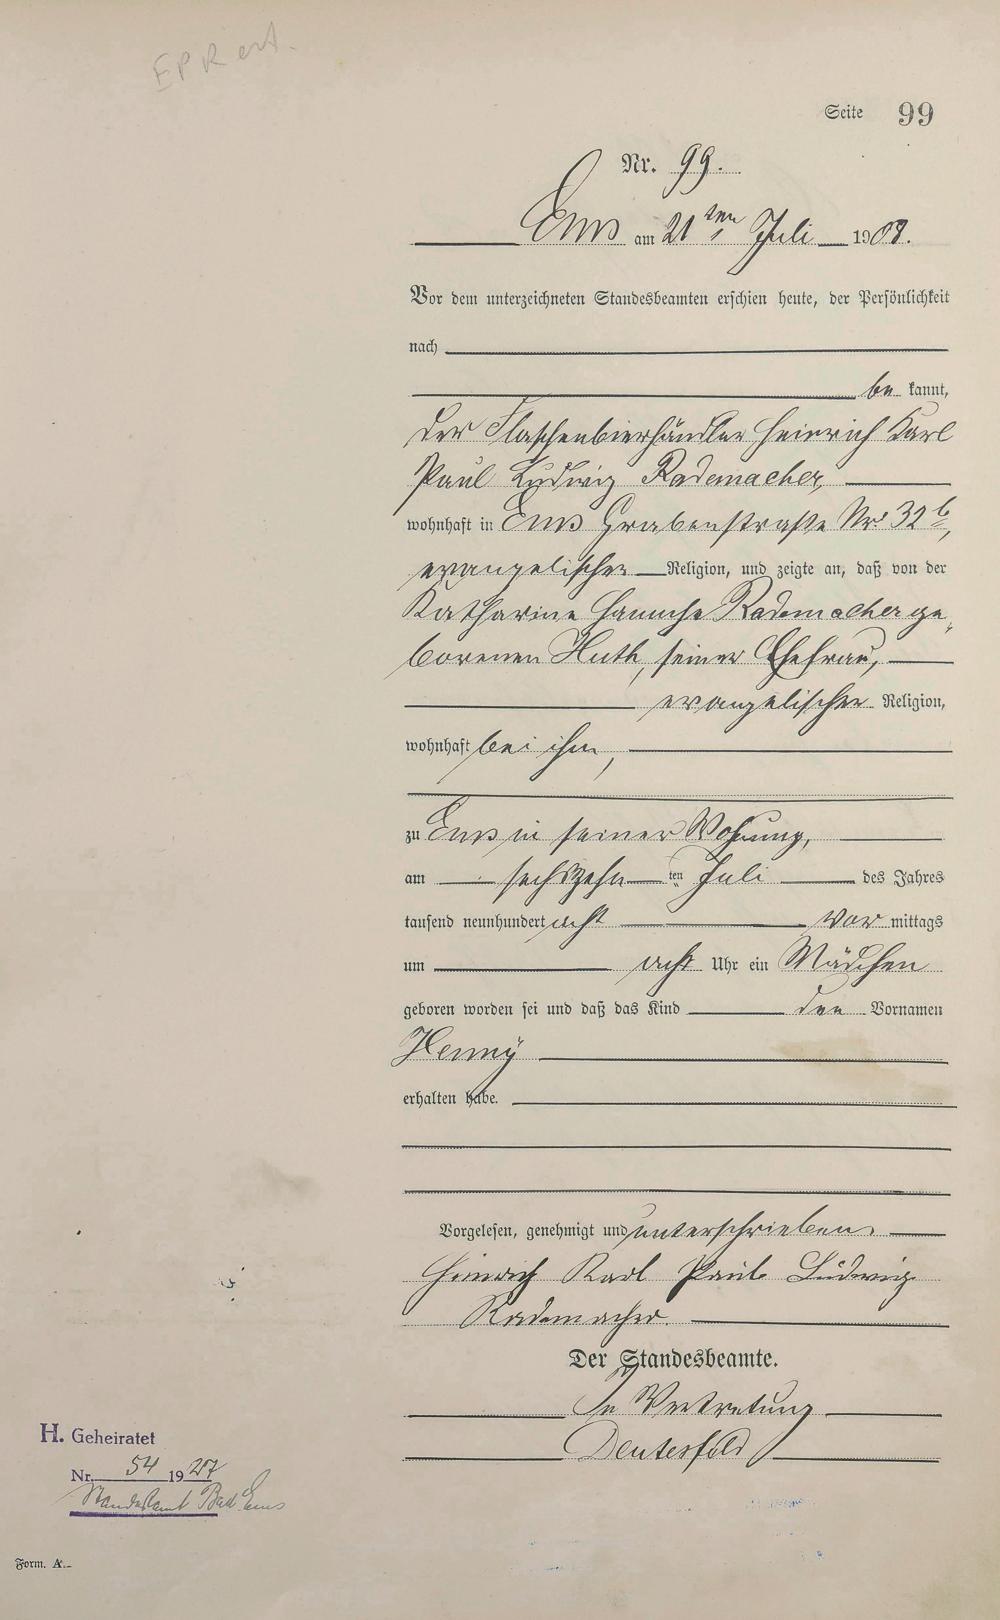 Seite 99
Nr. 99.
Ems am 21ten Juli 1908.
Vor dem unterzeichneten Standesbeamten erschien heute, der Persönlichkeit
nach
be kannt,
der Flaschenbierhändler Heinrich Karl
Paul Ludwig Rademacher,
wohnhaft in Ems Grabenstraße Nr. 32b,
evangelischer Religion, und zeigte an, daß von der
Katharine Rademacher ge„
borenen Huth, seiner Ehefrau,
evangelischer Religion,
wohnhaft bei ihm,
zu Ems in seiner Wohnung,
am sechszehn ten Juli des Jahres
tausend neunhundert acht vor mittags
um acht Uhr ein Mädchen
geboren worden sei und daß das Kind den Vornamen
Henny
erhalten habe.
Vorgelesen, genehmigt und unterschrieben.
Heinrich Karl Paul Ludwig
Rademacher.
Der Standesbeamte.
In Vertretung
H. Geheiratet
Nr. 54 1927
Standesamt Bad Ems
Form. A.